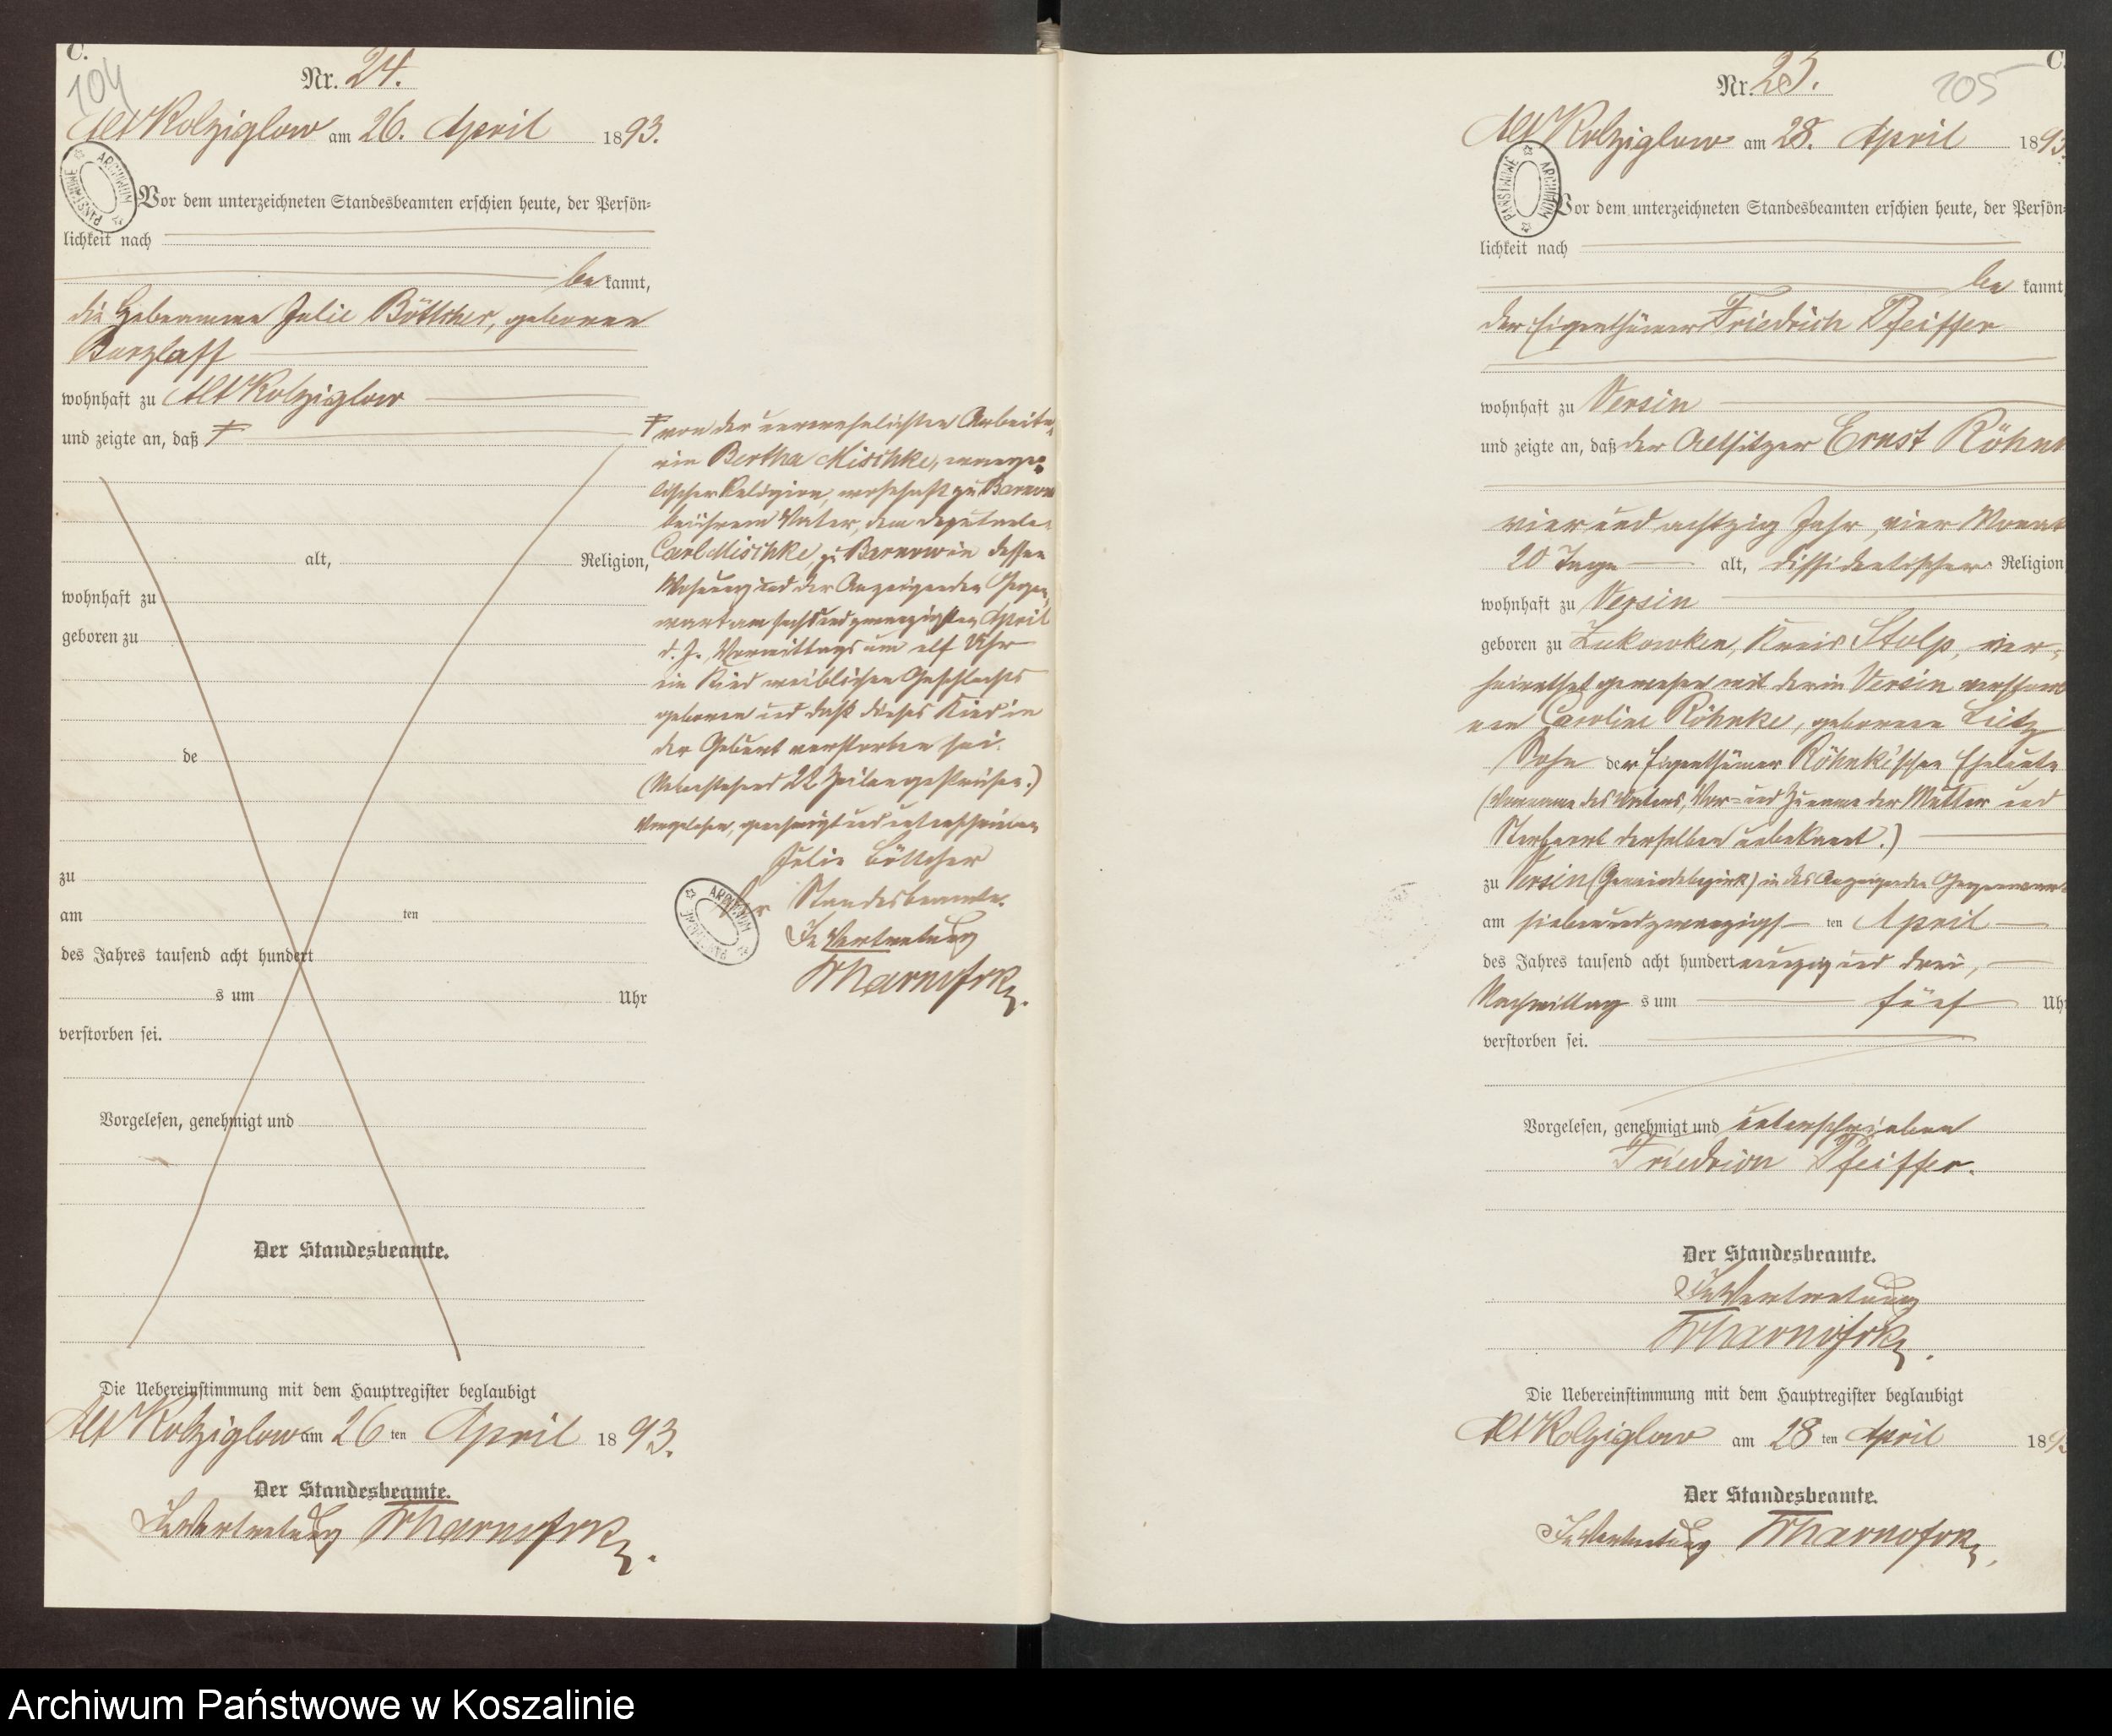 C.
104
Nr. 24.
Alt Kolziglow am 26. April 1893.
Vor dem unterzeichneten Standesbeamten erschien heute, der Persön-
lichkeit nach
be kannt,
die Hebeamme Julie Böttcher, geborene
Barzlaff
wohnhaft zu Alt Kolziglow
und zeigte an, daß
alt, Religion,
wohnhaft zu
geboren zu
de
zu
am ten
des Jahres tausend acht hundert
s um Uhr
verstorben sei.
Vorgelesen, genehmigt und
Der Standesbeamte.
von der unverehelichten Arbeite-
rin Bertha Mischke, evange-
lischer Religion, wohnhaft zu Barnow
bei ihrem Vater, dem
Carl Mischke, zu Barnow in dessen
Wohnung und der Anzeigenden Gegen-
wart am sechsundzwanzigsten April
d. J., Vormittags um elf Uhr
ein Kind weiblichen Geschlechts
geboren und daß dieses Kind in
der Geburt verstorben sei.
(Nebenstehend 22 Zeilen gestrichen.)
Vorgelesen, genehmigt und unterschrieben
Julie Böttcher
Der Standesbeamte.
In Vertretung
ARCHIWUM PAŃSTWOWE
Die Uebereinstimmung mit dem Hauptregister beglaubigt
Alt Kolziglow am 26 ten April 1893.
Der Standesbeamte.
In Vertretung
C.
205
Nr. 25.
Alt Kolziglow am 28. April 1893.
ARCHIWUM PAŃSTWOWE
Vor dem unterzeichneten Standesbeamten erschien heute, der Persön-
lichkeit nach
be kannt
der Eigenthümer Friedrich Pfeiffer
wohnhaft zu Versin
und zeigte an, daß der Altsitzer Ernst Röhnk
vier und achtzig Jahr, vier Monat
20 Tage alt, dissidentischer Religion
wohnhaft zu Versin
geboren zu Lukowken, Kreis Stolp, ver-
heirathet gewesen mit der in Versin verstorb
nen Caroline Röhnke, geborenen Lietz
Sohn der Eigenthümer Röhnke'schen Eheleute
(Vorname des Vaters, Vor- und Zuname der Mutter und
Sterbeort derselben unbekannt.)
zu Versin (Gemeindebezirk) in des Anzeigenden Gegenwart
am siebenundzwanzigs ten April
des Jahres tausend acht hundert neunzig und drei,
Nachmittag s um fünf Uhr
verstorben sei.
Vorgelesen, genehmigt und unterschrieben
Friedrich Pfeiffer.
Der Standesbeamte.
In Vertretung
Die Uebereinstimmung mit dem Hauptregister beglaubigt
Alt Kolziglow am 28 ten April 1893
Der Standesbeamte.
In Vertretung
Archiwum Państwowe w Koszalinie